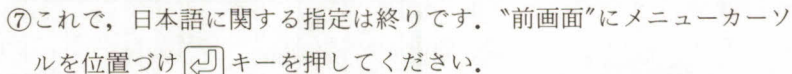 ⑦これで，日本語に関する指定は終りです．〝前画面″にメニューカーソ
ルを位置づけ⏎キーを押してください．